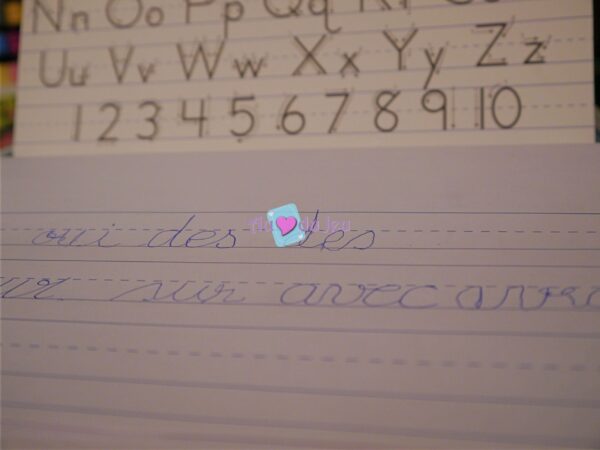 Nn Oo Pp Qq
Uu Vv Ww Xx Yy Zz
1 2 3 4 5 6 7 8 9 10
oui des des
sur avec